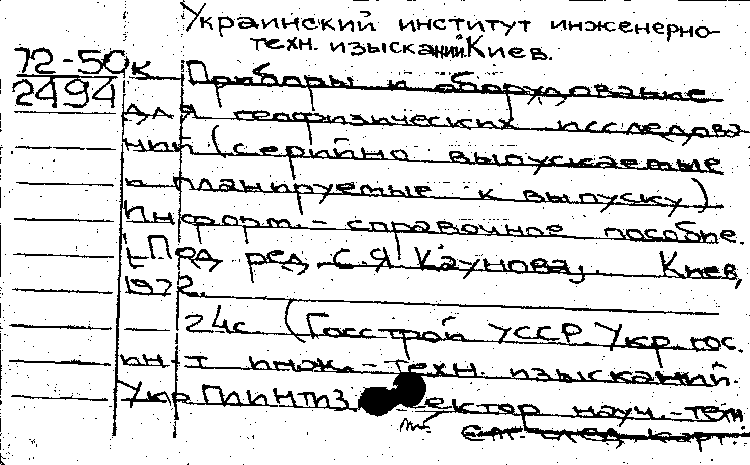 Украинский институт инженерно-
техн. изысканий. Киев.
72-50к Приборы и оборудование
2494 для геофизических исследова
ний (серийно выпускаемые
и планируемые к выпуску)
Информ.-справочное пособие.
[Под ред. С.Я. Каунова]. Киев,
1972.
24с. (Госстрой УССР. Укр. гос.
ин-т инж.-техн. изысканий.
УкрГИИНТИЗ. сектор науч.-техн
см. след. карт.